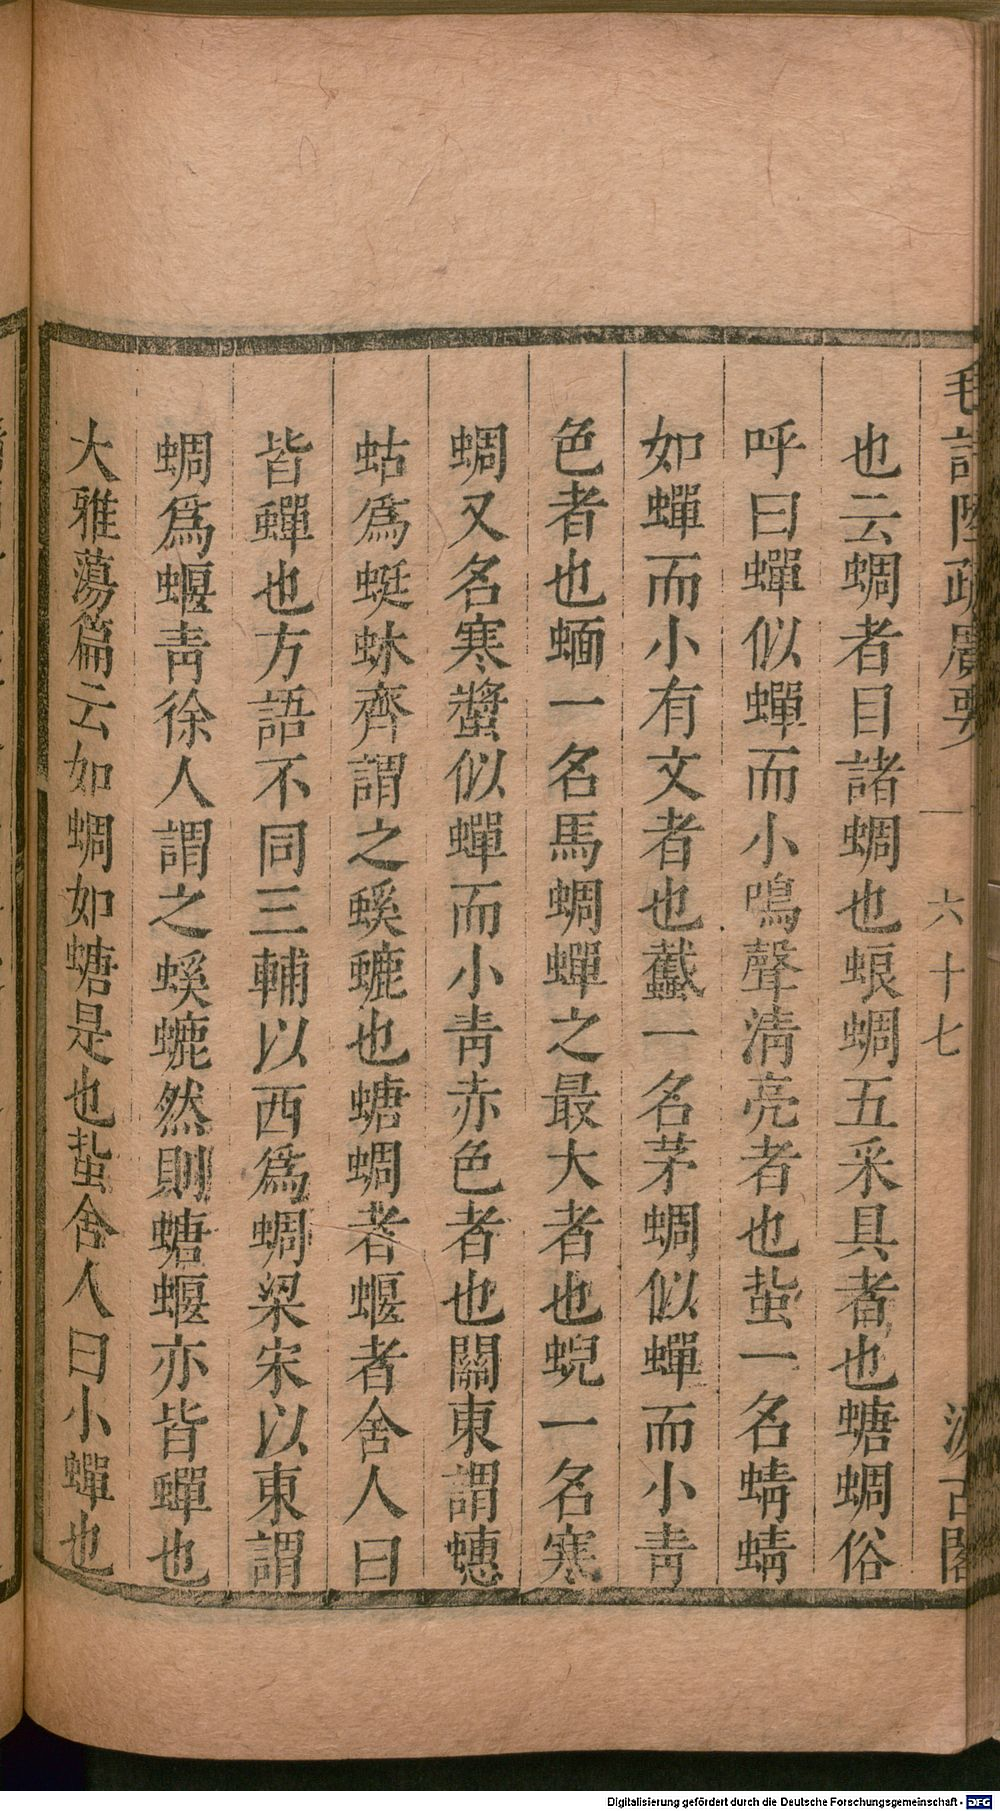 毛詩陸疏廣要
六十七
汲古閣
也云蜩者目諸蜩也蜋蜩五采具者也螗蜩俗
呼曰蟬似蟬而小鳴聲淸亮者也蚻一名蜻蜻
如蟬而小有文者也蠽一名茅蜩似蟬而小靑
色者也蝒一名馬蜩蟬之最大者也蜺一名寒
蜩又名寒螿似蟬而小靑赤色者也關東謂蟪
蛄爲蜓蚞齊謂之螇螰也螗蜩者蝘者舍人曰
皆蟬也方語不同三輔以西爲蜩梁宋以東謂
蜩爲蝘靑徐人謂之螇螰然則螗蝘亦皆蟬也
大雅蕩篇云如蜩如螗是也蚻舍人曰小蟬也
Digitalisierung gefördert durch die Deutsche Forschungsgemeinschaft - DFG